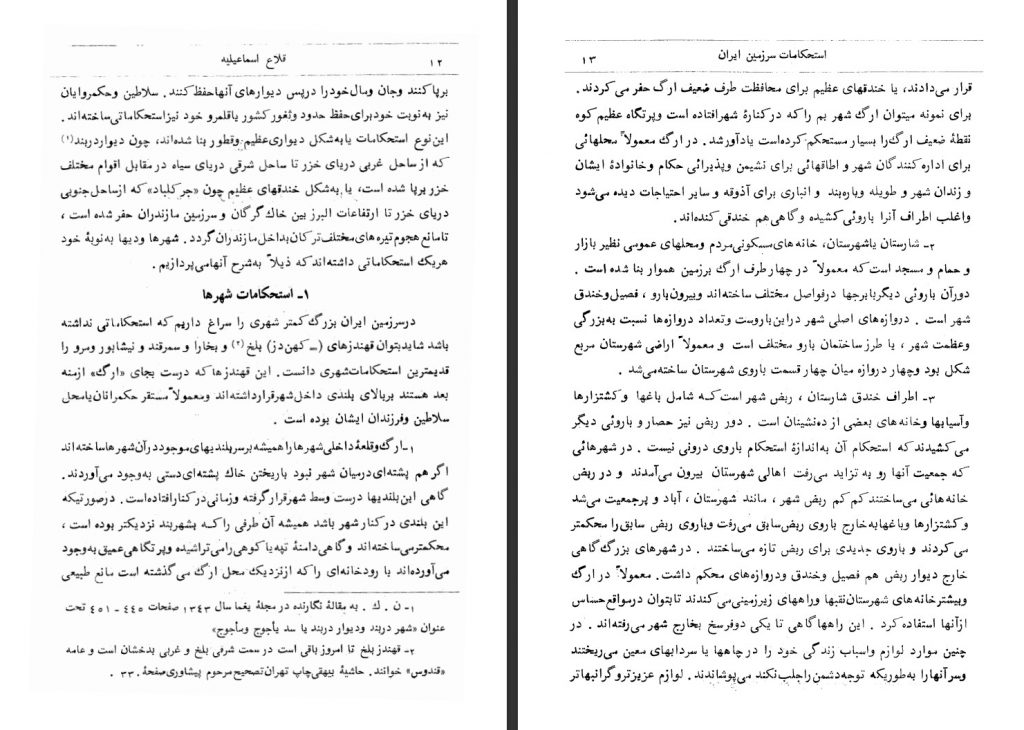 ۱۲
قلاع اسماعیلیه
برپا کنند وجان ومال خود را درپس دیوارهای آنها حفظ کنند . سلاطین وحکمروایان
نیز به نوبت خود برای حفظ حدود وثغور کشور یا قلمرو خود نیز استحکاماتی ساخته‌اند .
این نوع استحکامات یا به شکل دیواری عظیم وقطور بنا شده‌اند، چون دیوار دربند (۱)
که از ساحل غربی دریای خزر تا ساحل شرقی دریای سیاه در مقابل اقوام مختلف
خزر برپا شده است، یا به شکل خندقهای عظیم چون «جر کلباد» که از ساحل جنوبی
دریای خزر تا ارتفاعات البرز بین خاک گرگان و سرزمین مازندران حفر شده است ،
تا مانع هجوم تیره‌های مختلف ترکان بداخل مازندران گردد . شهرها ودیها به نوبهٔ خود
هریک استحکاماتی داشته‌اند که ذیلاً به شرح آنها می‌پردازیم .
۱ـ استحکامات شهرها
در سرزمین ایران بزرگ کمتر شهری را سراغ داریم که استحکاماتی نداشته
باشد شاید بتوان قهندزهای (ـ کهن دز) بلخ (۲) و بخارا و سمرقند و نیشابور ومرو را
قدیمترین استحکامات شهری دانست . این قهندزها که درست بجای «ارگ» ازمنه
بعد هستند بر بالای بلندی داخل شهر قرار داشته‌اند ومعمولاً مستقر حکمرانان یا محل
سلاطین وفرزندان ایشان بوده است .
۱ـ ارگ وقلعهٔ داخلی شهرها را همیشه بر سر بلندیهای موجود در آن شهرها ساخته‌اند
اگر هم پشته‌ای درمیان شهر نبود با ریختن خاک پشته‌ای دستی به وجود می‌آوردند .
گاهی این بلندیها درست وسط شهر قرار گرفته وزمانی در کنار افتاده است . درصورتیکه
این بلندی در کنار شهر باشد همیشه آن طرفی را که به شهر بند نزدیکتر بوده است ،
محکمتر می‌ساخته‌اند وگاهی دامنهٔ تپه یا کوهی را می‌تراشیده وپرتگاهی عمیق به وجود
می‌آورده‌اند با رودخانه‌ای را که از نزدیک محل ارگ می‌گذشته است مانع طبیعی
۱ـ ن . ک . به مقالهٔ نگارنده در مجلهٔ یغما سال ۱۳۴۳ صفحات ۴۴۵ ـ ۴۵۱ تحت
عنوان «شهر دربند ودیوار دربند یا سد یأجوج ومأجوج»
۲ـ قهندز بلخ تا امروز باقی است در سمت شرقی بلخ و غربی بدخشان است و عامه
«قندوس» خوانند . حاشیهٔ بیهقی چاپ تهران تصحیح مرحوم پیشاوری صفحهٔ ۳۳۰ .
استحکامات سرزمین ایران
۱۳
قرار می‌دادند، یا خندقهای عظیم برای محافظت طرف ضعیف ارگ حفر می کردند .
برای نمونه میتوان ارگ شهر بم را که در کنارهٔ شهر افتاده است وپرتگاه عظیم کوه
نقطهٔ ضعیف ارگ را بسیار مستحکم کرده است یادآور شد . در ارگ معمولاً محلهائی
برای اداره کنندگان شهر و اطاقهائی برای نشیمن وپذیرائی حکام وخانوادهٔ ایشان
و زندان شهر و طویله وپاره‌بند و انباری برای آذوقه و سایر احتیاجات دیده می‌شود
واغلب اطراف آنرا باروئی کشیده وگاهی هم خندقی کنده‌اند .
۲ـ شارستان یا شهرستان، خانه‌های مسکونی مردم ومحلهای عمومی نظیر بازار
و حمام و مسجد است که معمولاً در چهار طرف ارگ برزمین هموار بنا شده است .
دور آن باروئی دیگر با برجها درفواصل مختلف ساخته‌اند وبیرون بارو ، فصیل وخندق
شهر است . دروازه‌های اصلی شهر دراین باروست وتعداد دروازه‌ها نسبت به بزرگی
وعظمت شهر ، یا طرز ساختمان بارو مختلف است و معمولاً اراضی شهرستان مربع
شکل بود وچهار دروازه میان چهار قسمت باروی شهرستان ساخته می‌شد .
۳ـ اطراف خندق شارستان ، ربض شهر است که شامل باغها وکشتزارها
وآسیابها وخانه‌های بعضی از ده‌نشینان است . دور ربض نیز حصار و باروئی دیگر
می کشیدند که استحکام آن به اندازهٔ استحکام باروی درونی نیست . در شهرهائی
که جمعیت آنها رو به تزاید می‌رفت اهالی شهرستان بیرون می‌آمدند و در ربض
خانه‌هائی می‌ساختند کم کم ربض شهر ، مانند شهرستان ، آباد و پرجمعیت می‌شد
وکشتزارها وباغها به خارج باروی ربض سابق می‌رفت وباروی ربض سابق را محکمتر
می کردند و باروی جدیدی برای ربض تازه می‌ساختند . در شهرهای بزرگ گاهی
خارج دیوار ربض هم فصیل وخندق ودروازه‌های محکم داشت . معمولاً در ارگ
وبیشتر خانه‌های شهرستان نقبها وراههای زیرزمینی می کندند تا بتوان درمواقع حساس
از آنها استفاده کرد . این راهها گاهی تا یکی دوفرسخ بخارج شهر می‌رفته‌اند . در
چنین موارد لوازم واسباب زندگی خود را در چاهها یا سردابهای معین می‌ریختند
وسر آنها را به طوریکه توجه دشمن را جلب نکند می‌پوشاندند . لوازم عزیزتر وگرانبهاتر